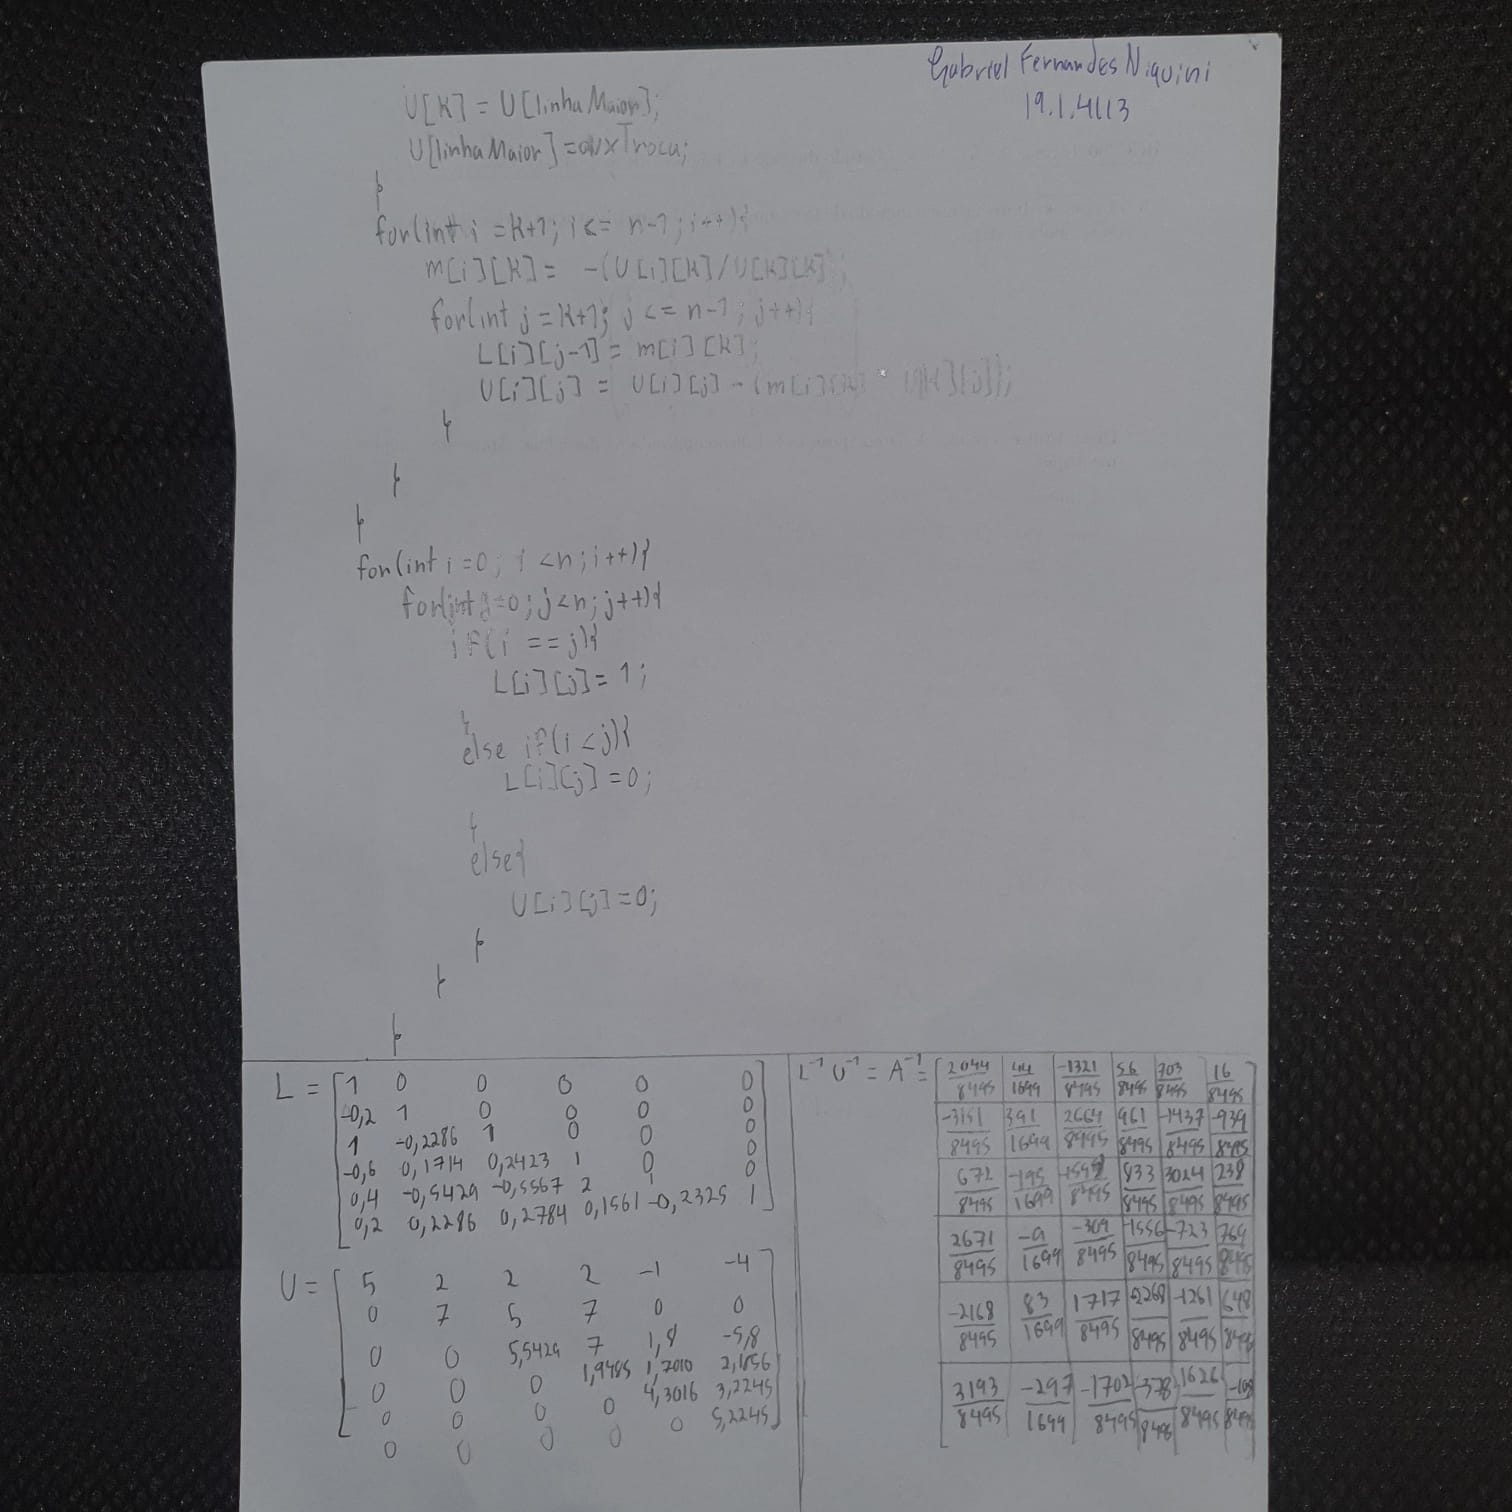 Gabriel Fernandes Niquini
19.1.4113
U[K] = U[linhaMaior];
U[linhaMaior] = auxTroca;
}
for(int i = K+1; i <= n-1; i++){
m[i][K] = -(U[i][K]/U[K][K]);
for(int j = K+1; j <= n-1; j++){
L[i][j-1] = m[i][K];
U[i][j] = U[i][j] - (m[i][K] * U[K][j]);
}
}
}
for(int i=0; i <n; i++){
for(int j=0; j<n; j++){
if(i == j){
L[i][j] = 1;
}
else if(i <j){
L[i][j] =0;
}
else{
U[i][j]=0;
}
}
}
L = [1 0 0 0 0 0
-0,2 1 0 0 0 0
1 -0,2286 1 0 0 0
-0,6 0,1714 0,2423 1 0 0
0,4 -0,5429 -0,5567 2 1 0
0,2 0,2286 0,2784 0,1561 -0,2325 1]
U = [5 2 2 2 -1 -4
0 7 5 7 0 0
0 0 5,5429 7 1,8 -5,8
0 0 0 1,9485 1,7010 2,1856
0 0 0 0 4,3016 3,2245
0 0 0 0 0 5,2245]
L⁻¹ U⁻¹ = A⁻¹ = [2044/8495 44/1699 -1321/8495 56/8495 703/8495 16/8495
-3151/8495 391/1699 2664/8495 961/8495 -1437/8495 -939/8495
672/8495 -195/1699 /8495 833/8495 3024/8495 238/8495
2671/8495 -9/1699 -309/8495 -1556/8495 -723/8495 769/8495
-2168/8495 83/1699 1717/8495 -2268/8495 -1261/8495 648/8495
3193/8495 -297/1699 -1702/8495 -378/8495 1626/8495 /8495]